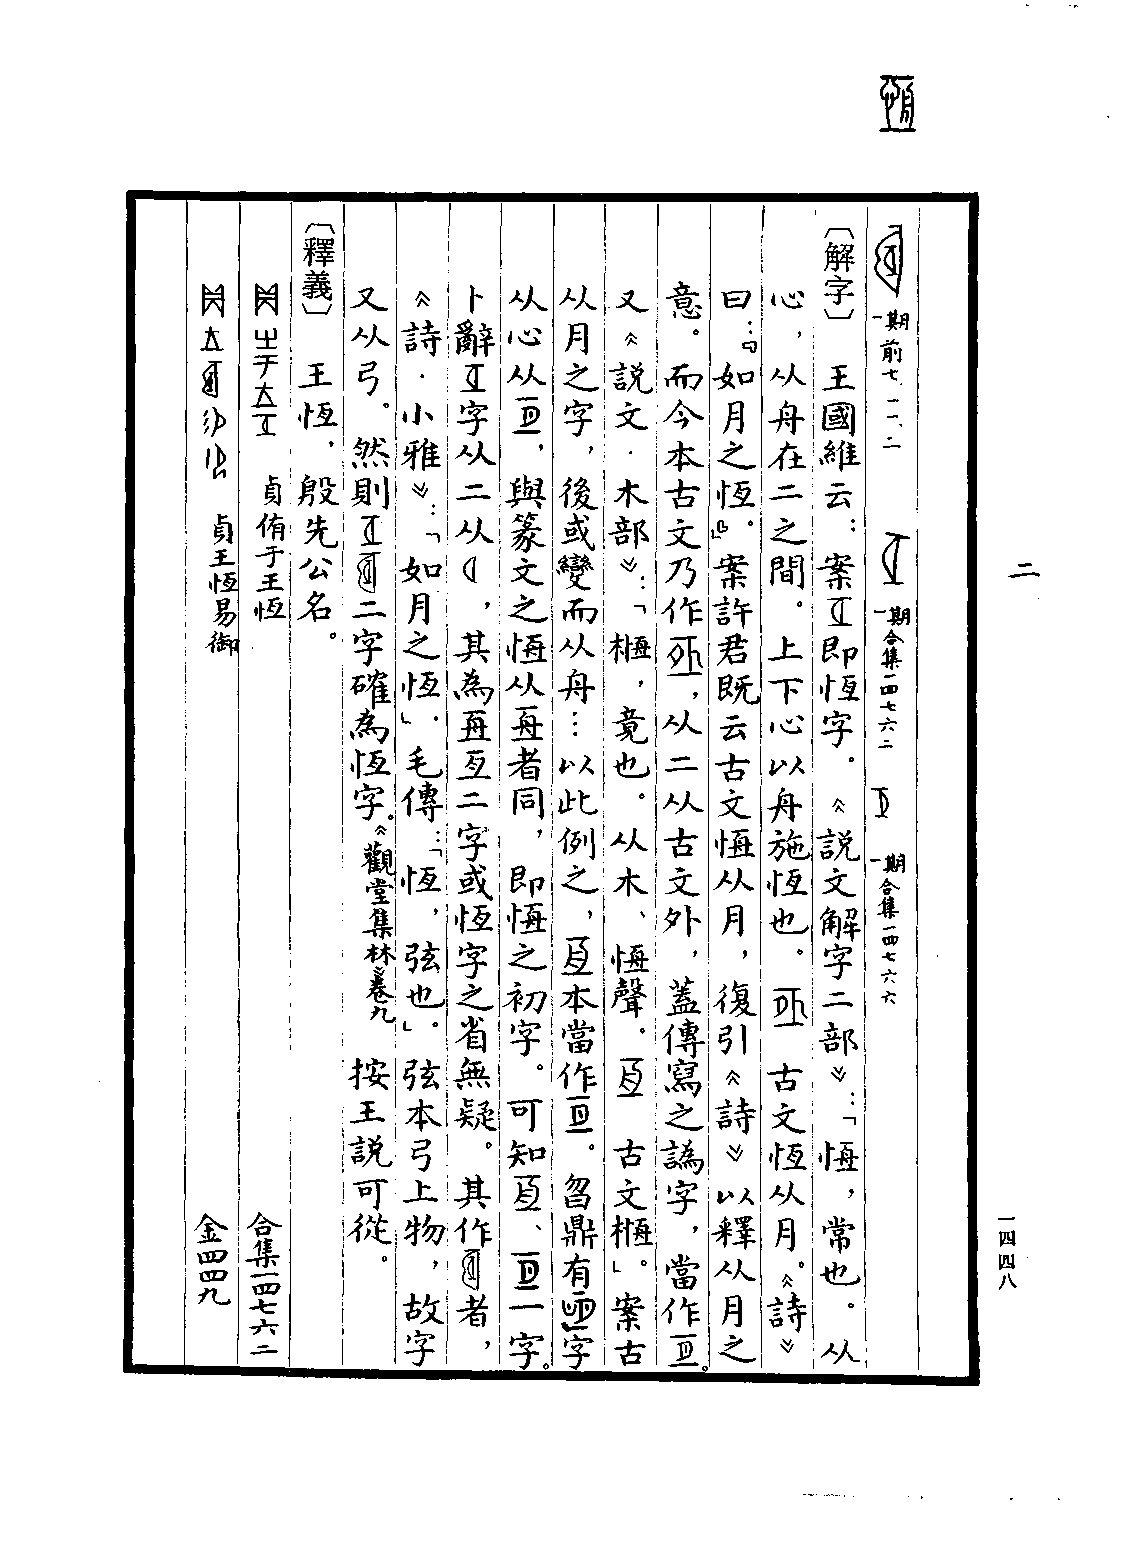 二
一四四八
一期 前七.一一.二 一期 合集一四七六二 一期 合集一四七六六
〔解字〕 王國維云：案即恆字。《說文解字二部》：「恆，常也。从
心，从舟在二之間。上下心以舟施恆也。 古文恆从月。《詩》
曰：『如月之恆。』案許君既云古文恆从月，復引《詩》以釋从月之
意。而今本古文乃作，从二从古文外，蓋傳寫之譌字，當作。
又《說文·木部》：「㮓，竟也。从木、恆聲。亙 古文㮓」。案古
从月之字，後或變而从舟…以此例之，本當作。曶鼎有字
从心从，與篆文之恆从者同，即恆之初字。可知、一字。
卜辭字从二从，其為亙二字或恆字之省無疑。其作者，
《詩·小雅》：「如月之恆」．毛傳：「恆，弦也」。弦本弓上物，故字
又从弓。然則二字確為恆字。《觀堂集林》卷九 按王說可從。
〔釋義〕 王恆，殷先公名。
貞侑于王恆 合集一四七六二
貞王恆易御 金四四九